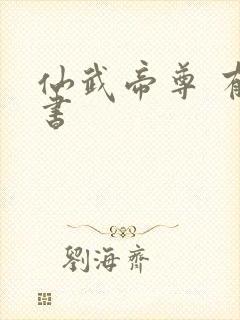 仙武帝尊
書
劉海齊